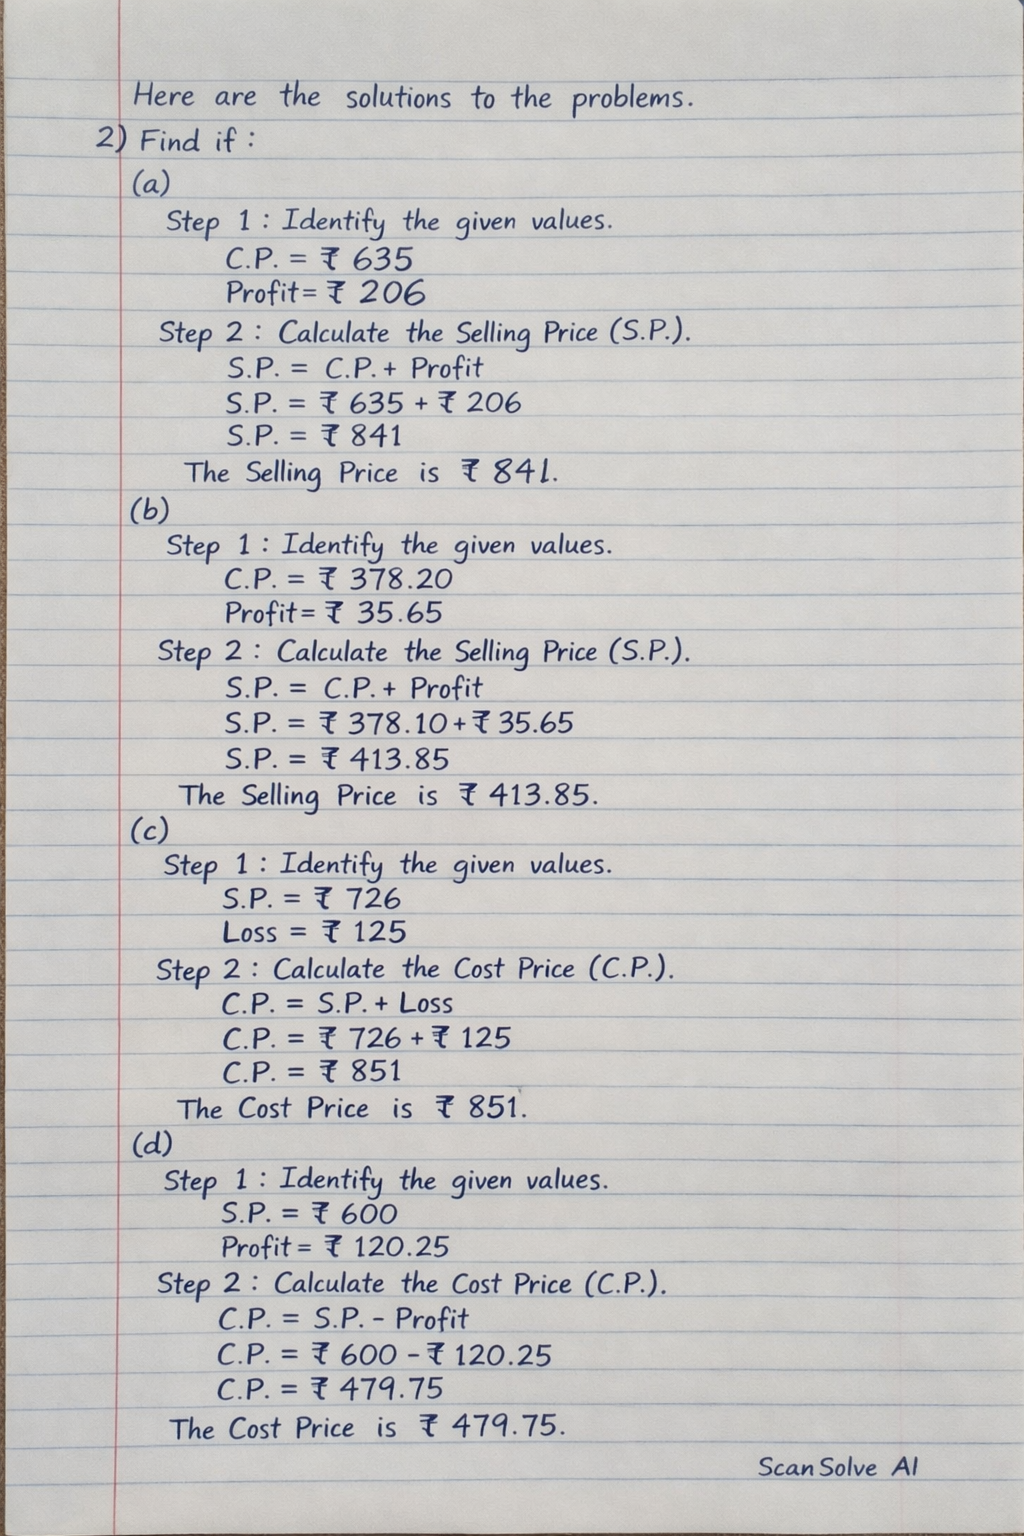 Here are the solutions to the problems.
2) Find if :
(a)
Step 1 : Identify the given values.
C.P. = ₹ 635
Profit= ₹ 206
Step 2 : Calculate the Selling Price (S.P.).
S.P. = C.P. + Profit
S.P. = ₹ 635 + ₹ 206
S.P. = ₹ 841
The Selling Price is ₹ 841.
(b)
Step 1 : Identify the given values.
C.P. = ₹ 378.20
Profit= ₹ 35.65
Step 2 : Calculate the Selling Price (S.P.).
S.P. = C.P. + Profit
S.P. = ₹ 378.10 + ₹ 35.65
S.P. = ₹ 413.85
The Selling Price is ₹ 413.85.
(c)
Step 1 : Identify the given values.
S.P. = ₹ 726
Loss = ₹ 125
Step 2 : Calculate the Cost Price (C.P.).
C.P. = S.P. + Loss
C.P. = ₹ 726 + ₹ 125
C.P. = ₹ 851
The Cost Price is ₹ 851.
(d)
Step 1 : Identify the given values.
S.P. = ₹ 600
Profit = ₹ 120.25
Step 2 : Calculate the Cost Price (C.P.).
C.P. = S.P. - Profit
C.P. = ₹ 600 - ₹ 120.25
C.P. = ₹ 479.75
The Cost Price is ₹ 479.75.
ScanSolve AI